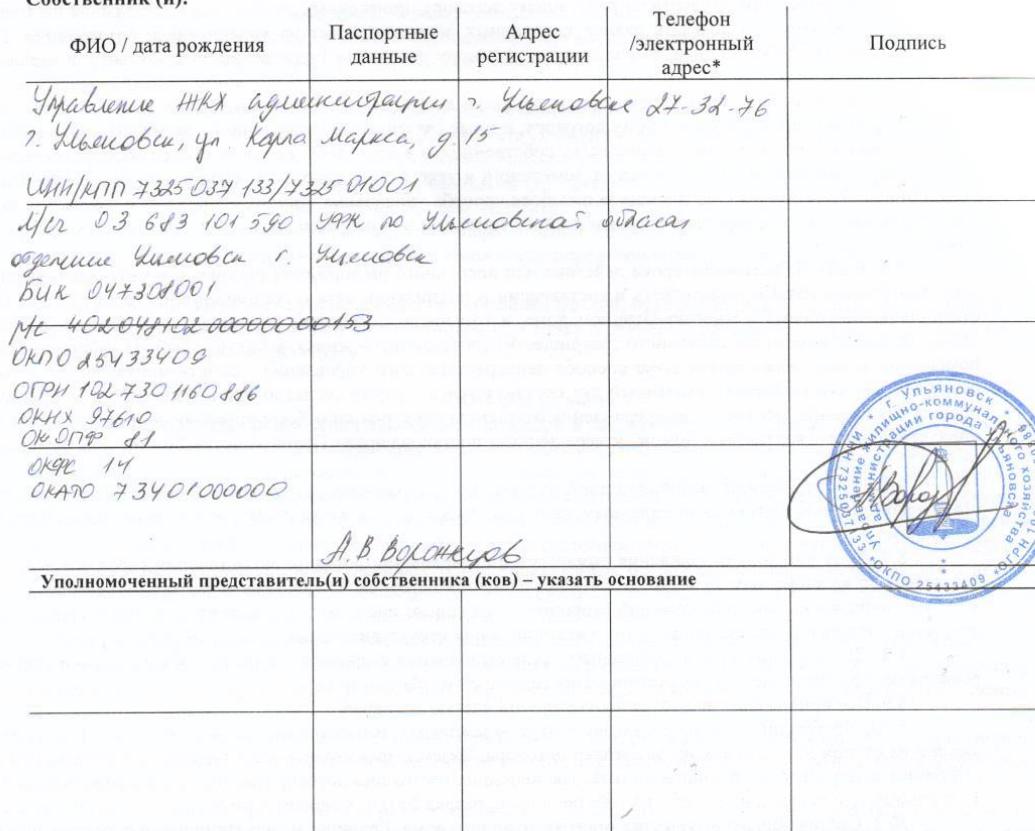 Собственник (и):
ФИО / дата рождения
Паспортные данные
Адрес регистрации
Телефон /электронный адрес*
Подпись
Управление ЖКХ администрации г. Ульяновска 27-32-76
г. Ульяновск, ул. Карла Маркса, д. 15
ИНН/КПП 7325037133/732501001
Л/сч 03 683 101 590 УФК по Ульяновской области
отделение Ульяновск г. Ульяновск
БИК 047308001
Р/с 40204810200000000153
ОКПО 25433409
ОГРН 1027301160886
ОКНХ 97610
ОКОПФ 81
ОКФС 14
ОКАТО 73401000000
А.В Воронцов
г. Ульяновск
Управление жилищно-коммунального хозяйства
администрации города Ульяновска
ОКПО 25433409
Уполномоченный представитель(и) собственника (ков) – указать основание